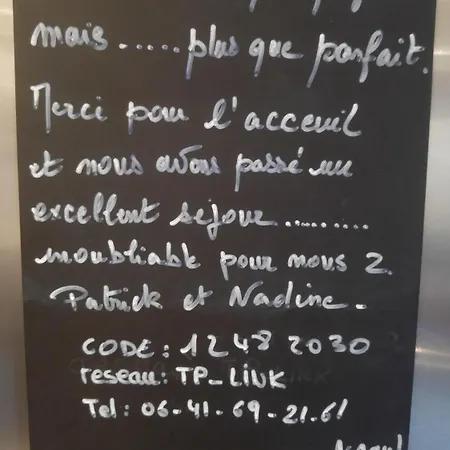 mais.....plus que parfait.
Merci pour l'acceuil
et nous avons passé un
excellent séjour..........
inoubliable pour nous 2.
Patrick et Nadine.
CODE: 1248 2030
reseau: TP-LiNK
Tel: 06-41-69-21-61